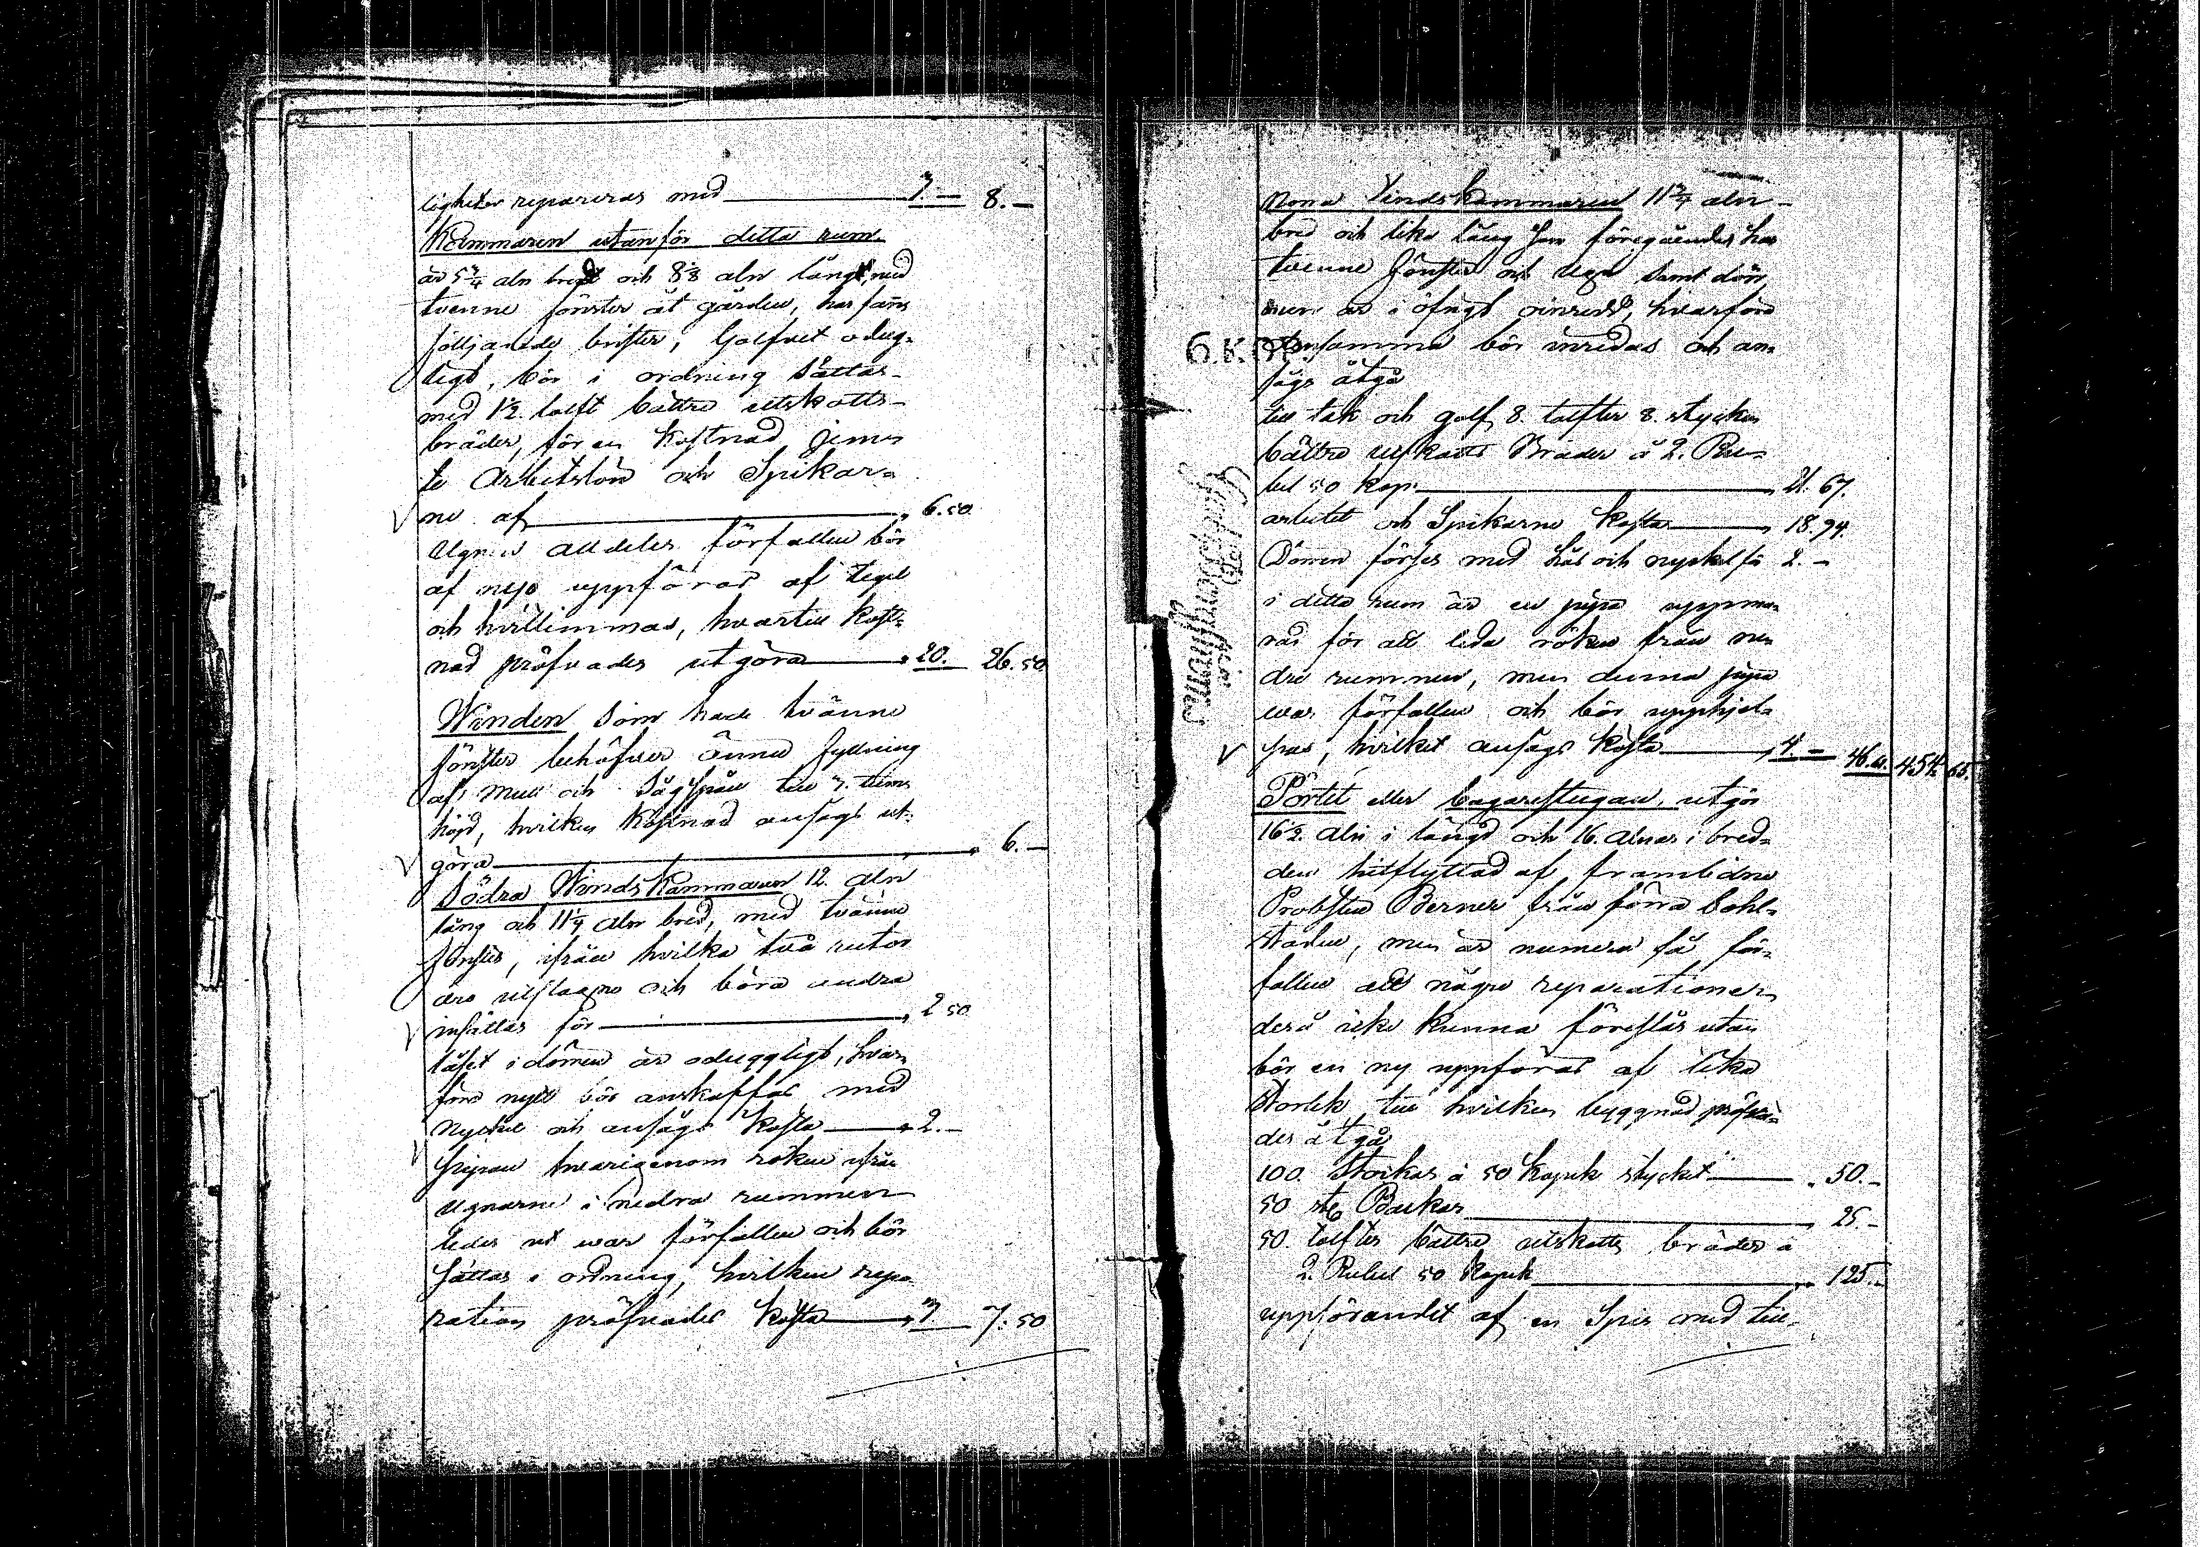 ligheter repareras med 7.— 8.—
Kammaren utanför detta rum.
är 5 3/4 aln bred och 8 1/8 aln lång, med
tvenne fönster åt gården, har fans
följande brister, Golfvet odug-
ligt, bör i ordning sättas
med 1 1/2 tolft bättre utskotts-
bräder, för en kostnad jem-
te Arbetslön och Spikar-
ne af 6.50
Ugnen alldeles förfallen bör
af nyo uppföras af tegel
och hvitlimmas, hvartill kost-
nad pröfvades utgöra 20. 26.50
Winden som hade tvänne
fönster behöfver ännu fyllning
af mull och sågspån till 7. tums
höjd, hvilken kostnad ansågs ut-
göra 6.—
Södra Winds Kammaren 12. aln
lång och 11 1/4 aln bred, med tvänne
fönster, ifrån hvilka två rutor
äro utslagne och böra andra
insättas för 2 50
låset i dörren är odugligt, hvar-
före nytt bör anskaffas med
nyckel och ansågs kosta 2.—
pipan hvarigenom röken ifrån
ugnarne i nedra rummen
ledes ut war förfallen och bör
sättas i ordning, hvilken repa-
ration pröfvades kosta 3 7.50
Norra Vindskammaren 11 3/4 aln
bred och lika lång som föregående har
tvenne fönster och ugn samt dörr
men är i öfrigt oinredd, hvarföre
densamma bör inredas och an-
sågs åtgå
till tak och golf 8. tolfter 8. stycken
bättre utskotts Bräder á 2. Ru-
bel 50 kop. 21.67.
arbetet och Spikarne kosta 18.94.
Dörren förses med lås och nyckel för 2.—
i detta rum är en pipa uppmu-
rad för att leda röken från ne-
dre rummen, men denna pipa
war förfallen och bör upphjel-
pas, hvilket ansågs kosta 4.— 46.61. 454.65.
Pörtet eller bagarestugan utgör
16 1/2 aln i längd och 16. alnar i bred-
den hitflyttad af framlidne
Probsten Berner från förra Bohl-
staden, men är numera så för-
fallen att några reparationer
derå icke kunna föreslås utan
bör en ny uppföras af lika
storlek till hvilken byggnad pröfva-
des åtgå
100. Stockar á 50 kopek stycket 50.—
50 st. Balkar 25.—
50. tolfter bättre utskotts bräder á
2. Rubel 50 kopek 125.—
uppförandet af en Spis med till-